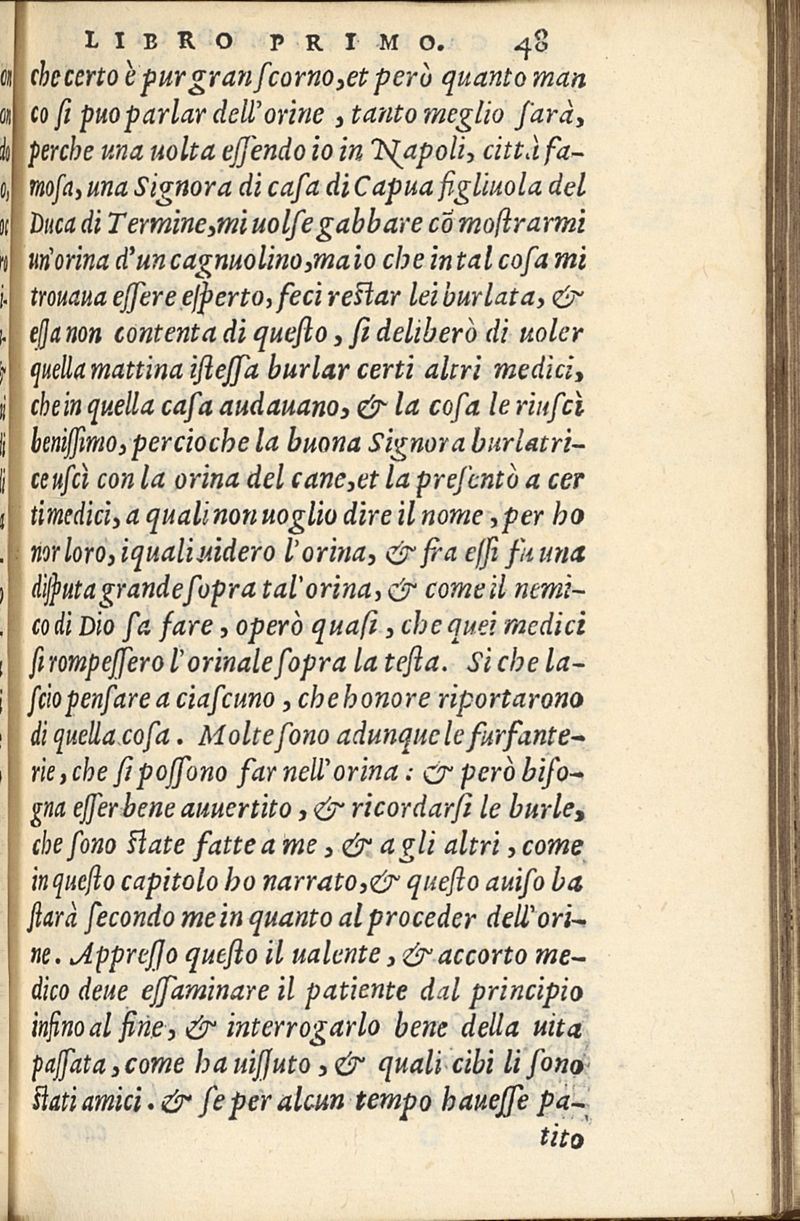 LIBRO PRIMO. 48
che certo è pur gran ſcorno, et però quanto man
co ſi puo parlar dell'orine, tanto meglio ſarà,
perche una uolta eſſendo io in Napoli, città fa-
moſa, una Signora di caſa di Capua figliuola del
Duca di Termine, mi uolſe gabbare cõ moſtrarmi
un'orina d'un cagnuolino, ma io che in tal coſa mi
trouaua eſſere eſperto, feci reſtar lei burlata, &
eſſa non contenta di queſto, ſi deliberò di uoler
quella mattina iſteſſa burlar certi altri medici,
che in quella caſa audauano, & la coſa le riuſcì
beniſſimo, percioche la buona Signora burlatri-
ce uſcì con la orina del cane, et la preſentò a cer
ti medici, a quali non uoglio dire il nome, per ho
nor loro, i quali uidero l'orina, & fra eſſi fu una
diſputa grande ſopra tal'orina, & come il nemi-
co di Dio ſa fare, operò quaſi, che quei medici
ſi rompeſſero l'orinale ſopra la teſta. Si che la-
ſcio penſare a ciaſcuno, che honore riportarono
di quella coſa. Molte ſono adunque le furfante-
rie, che ſi poſſono far nell'orina: & però biſo-
gna eſſer bene auuertito, & ricordarſi le burle,
che ſono ſtate fatte a me, & a gli altri, come
in queſto capitolo ho narrato, & queſto auiſo ba
ſtarà ſecondo me in quanto al proceder dell'ori-
ne. Appreſſo queſto il ualente, & accorto me-
dico deue eſſaminare il patiente dal principio
infino al fine, & interrogarlo bene della uita
paſſata, come ha uiſſuto, & quali cibi li ſono
ſtati amici. & ſe per alcun tempo haueſſe pa-
tito